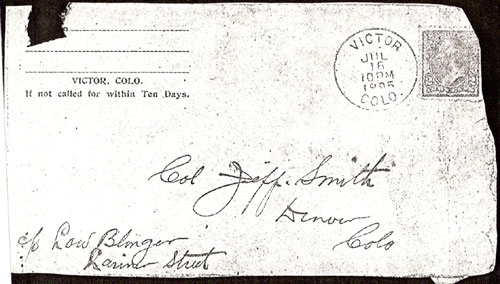 VICTOR, COLO.
If not called for within Ten Days.
VICTOR
JUL
16
10PM
1895
COLO.
Col Jeff. Smith
Denver
Colo
c/o Low Blonger
Larimer Street